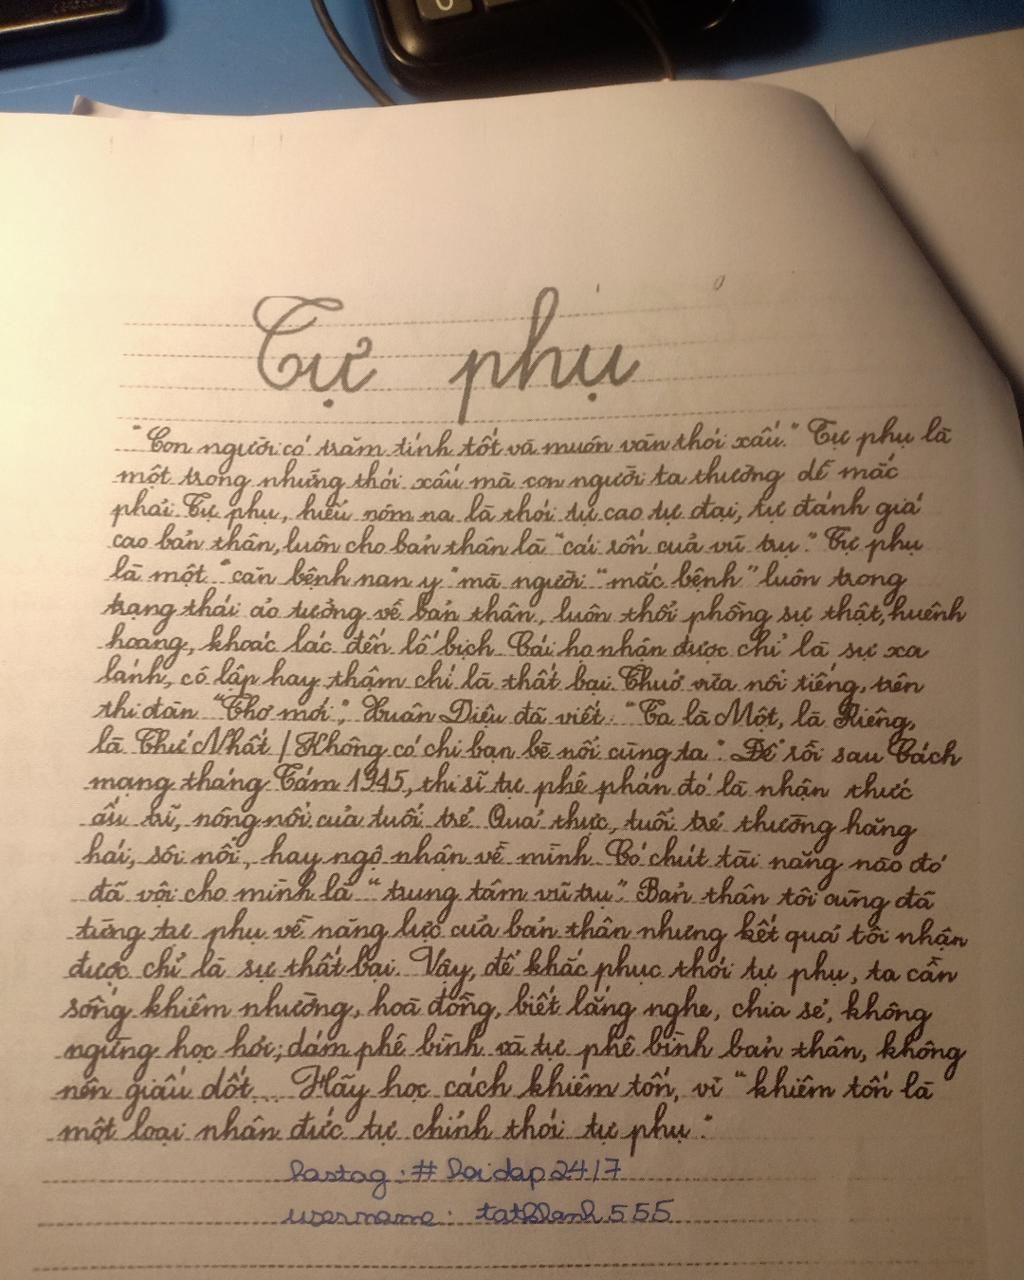 Tự phụ
"Con người có trăm tính tốt và muôn vàn thói xấu." Tự phụ là
một trong những thói xấu mà con người ta thường dễ mắc
phải. Tự phụ, hiểu nôm na là thói tự cao tự đại, tự đánh giá
cao bản thân, luôn cho bản thân là "cái rốn của vũ trụ." Tự phụ
là một "căn bệnh nan y" mà người "mắc bệnh" luôn trong
trạng thái ảo tưởng về bản thân, luôn thổi phồng sự thật, huênh
hoang, khoác lác đến lố bịch. Cái họ nhận được chỉ là sự xa
lánh, cô lập hay thậm chí là thất bại. Thuở vừa nổi tiếng, trên
thi đàn "Thơ mới", Xuân Diệu đã viết: "Ta là Một, là Riêng,
là Thứ Nhất / Không có chi bạn bè nổi cùng ta". Để rồi sau Cách
mạng tháng Tám 1945, thi sĩ tự phê phán đó là nhận thức
ấu trĩ, nông nổi của tuổi trẻ. Quả thực, tuổi trẻ thường hăng
hái, sôi nổi, hay ngộ nhận về mình. Có chút tài năng nào đó
đã vội cho mình là "trung tâm vũ trụ". Bản thân tôi cũng đã
từng tự phụ về năng lực của bản thân nhưng kết quả tôi nhận
được chỉ là sự thất bại. Vậy, để khắc phục thói tự phụ, ta cần
sống khiêm nhường, hoà đồng, biết lắng nghe, chia sẻ, không
ngừng học hỏi; dám phê bình và tự phê bình bản thân, không
nên giấu dốt... Hãy học cách khiêm tốn, vì "khiêm tốn là
một loại nhân đức tự chỉnh thói tự phụ".
hastag: # hoidap247
username: tathanh555